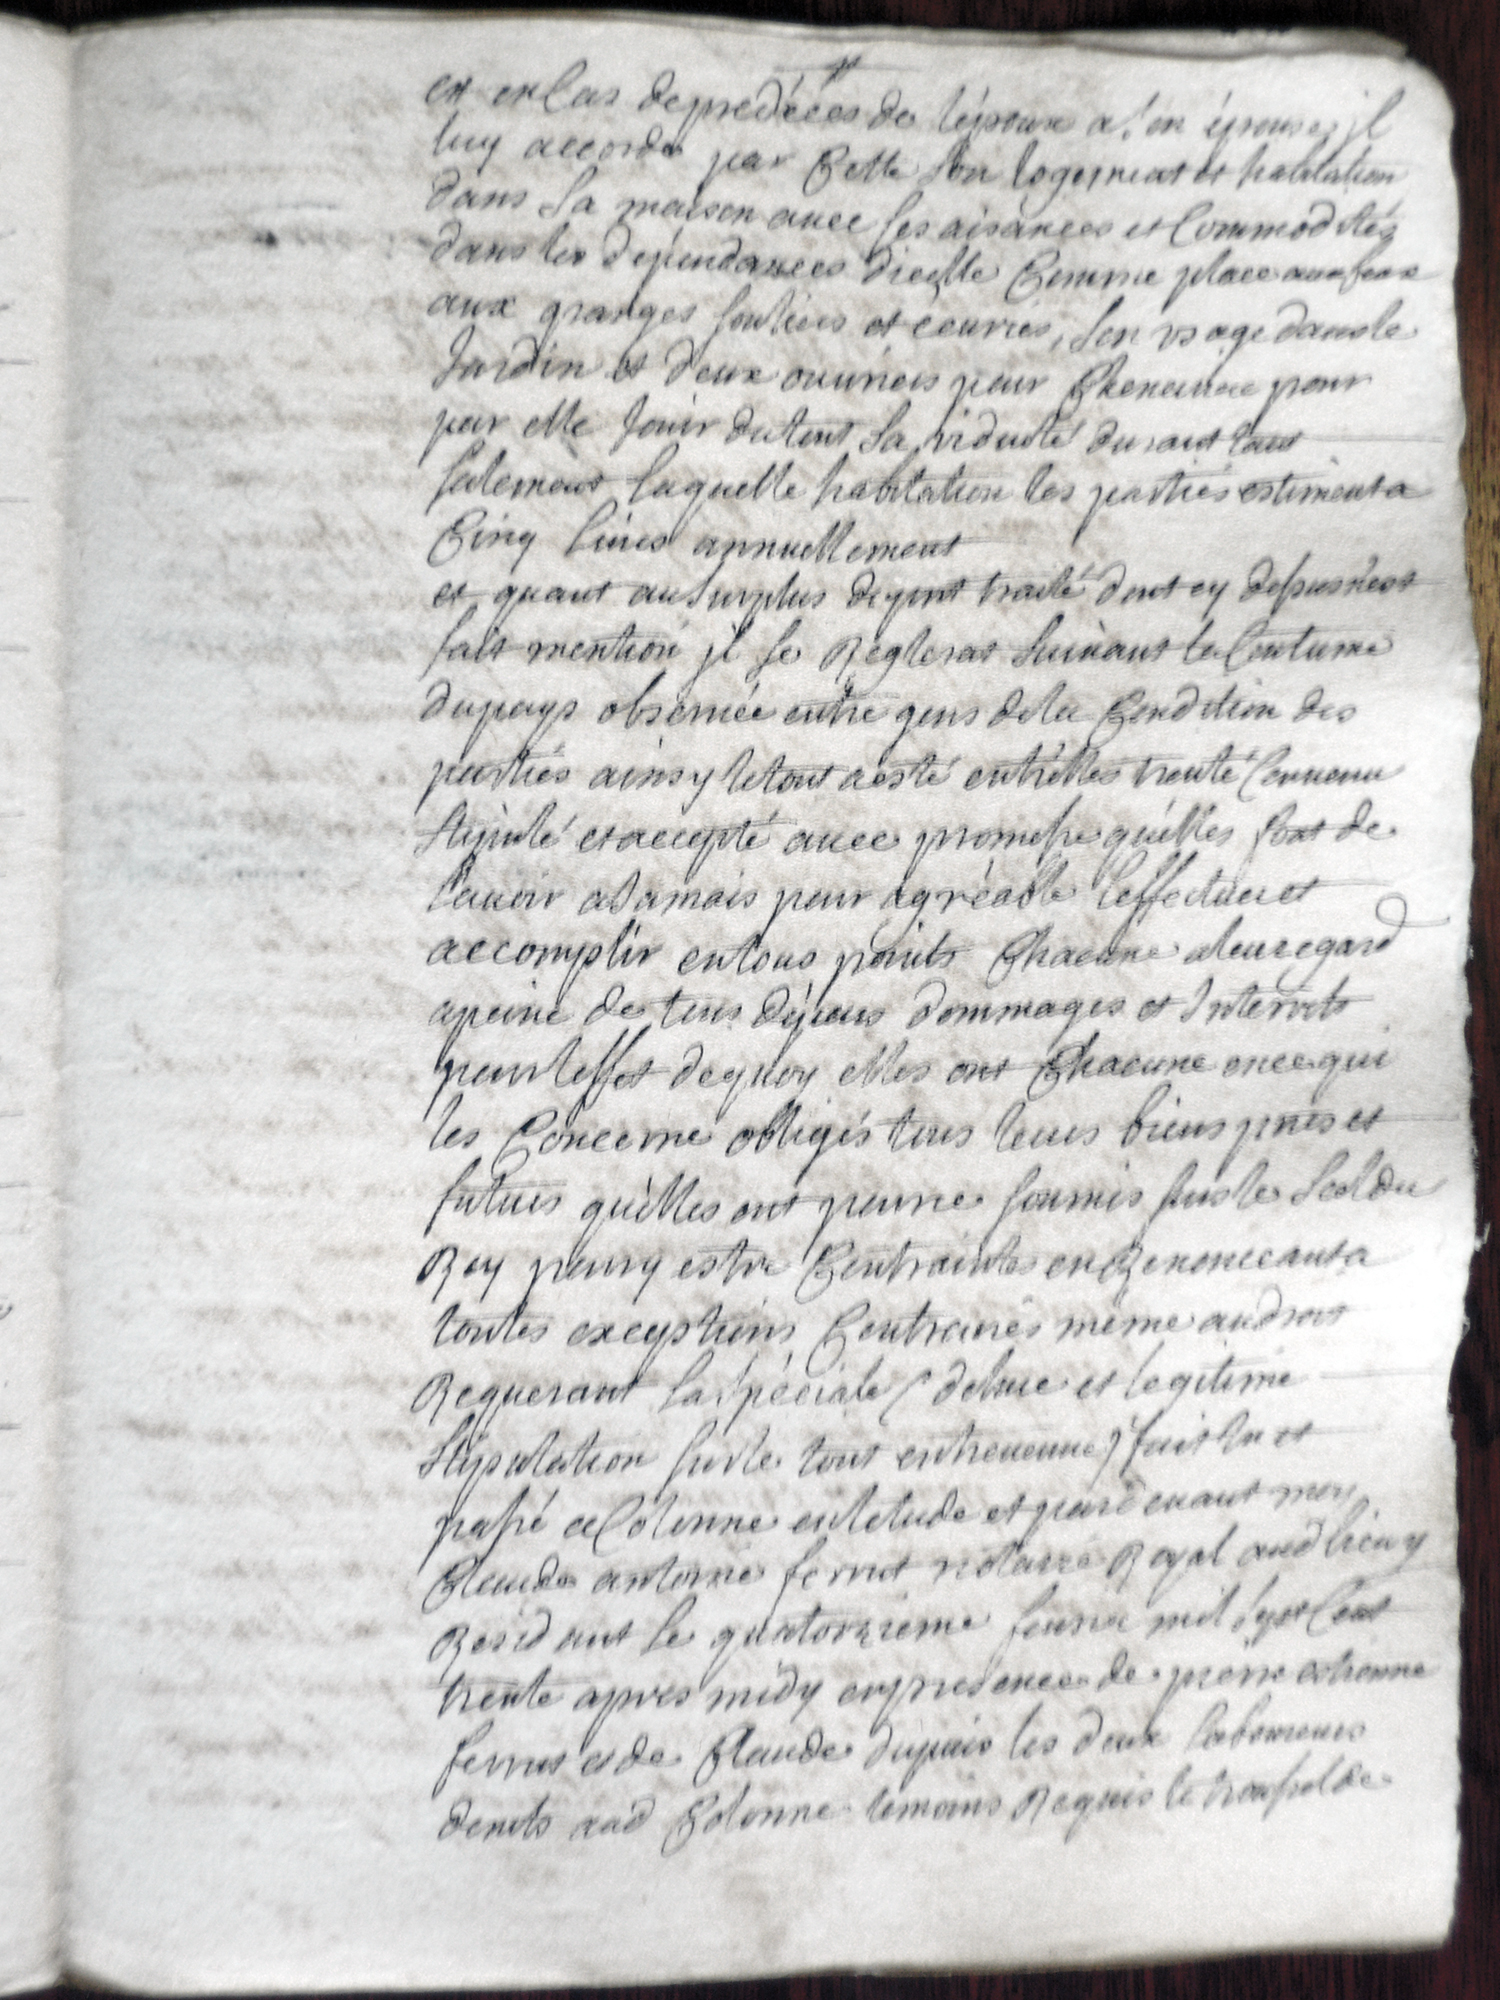 et en Cas de predécés de lépoux a son épouse jl
luy accorde par Cette son logement et habitation
dans sa maison avec ses aisances et Commodités
dans les dépendances dicelle Comme place aux feux
aux granges soulier et écuries, son usage dans le
Jardin et deux ouvriers pour Cheneviere pour
par elle Jouir du tout sa viduité durant tant
salement laquelle habitation les parties estiment a
Cinq livres annuellement
et quant au surplus du pnt traité dont cy dessus nest
fait mention jl se Réglerat suivant la Coutume
du pays observée entre gens de la Condition des
parties ainsy le tout a esté entrelles traité Convenu
stipulé et accepté avec promesse quelles font de
lavoir a Jamais pour agréable leffectuer et
accomplir en tous points Chacune a leur egard
a peine de tous dépens dommages et Interests
pour leffet de quoy elles ont Chacune en ce qui
les Concerne obligés tous leurs biens pnts et
futurs quelles ont pour ce soumis sous le Scel du
Roy pour y estre Contraintes en Renonceant a
toutes exceptions Contraires même au droit
Requerant la spéciale / debue et legitime
stipulation sur le tout entrevenue / fait lu et
passé a Colonne en letude et pardevant moy
Claude antoine ferrut notaire Royal aud lieu y
Residant le quatorzieme feuvrier mil sept Cent
trente apres midy en presence de pierre estienne
ferrut et de Claude dupuis les deux laboureurs
demts aud Colonne temoins Requis le